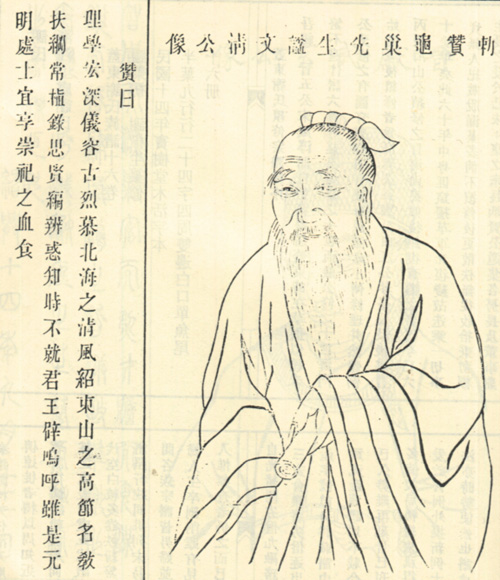 勅贊龜巢先生謚文清公像
贊曰
理學宏深儀容古烈慕北海之清風紹東山之高節名教
扶綱常植錄思賢編辨惑知時不就君王辟嗚呼雖是元
明處士宜享崇祀之血食